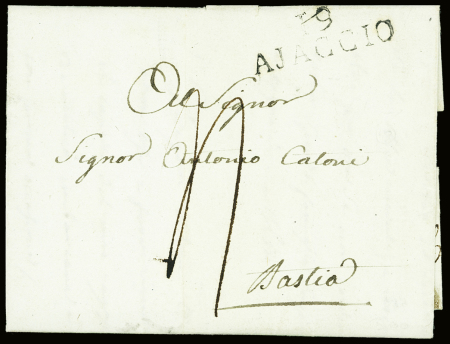 19
AJACCIO
Al Signor
Signor Antonio Catoni
Bastia